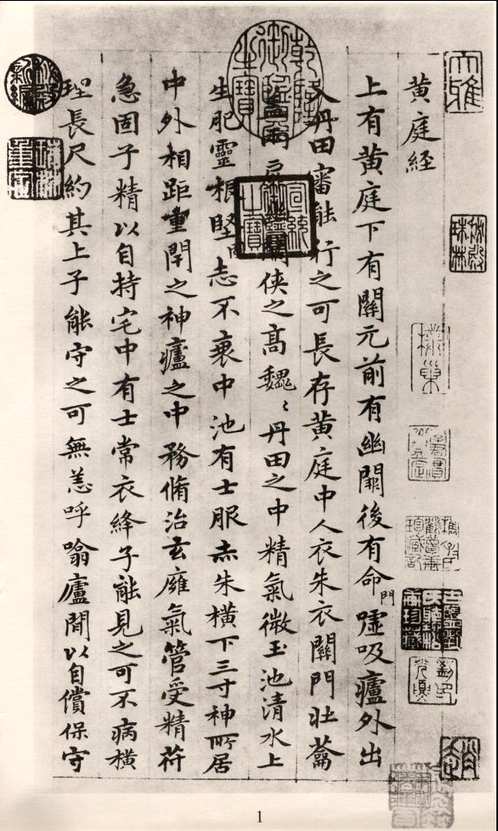 大雅
秘殿珠林
黄庭経
上有黄庭下有關元前有幽闕後有命門嘘吸廬外出
入丹田審能行之可長存黄庭中人衣朱衣關門壯蘥
蓋兩扉幽闕俠之高巍〻丹田之中精氣微玉池清水上
生肥靈根堅志不衰中池有士服赤朱横下三寸神所居
中外相距重閇之神廬之中務脩治玄廱氣管受精苻
急固子精以自持宅中有士常衣絳子能見之可不病横
理長尺約其上子能守之可無恙呼噏廬間以自償保守
乾隆御覽之寶
宣統御覽之寶
秘殿新編
珠林重定
1